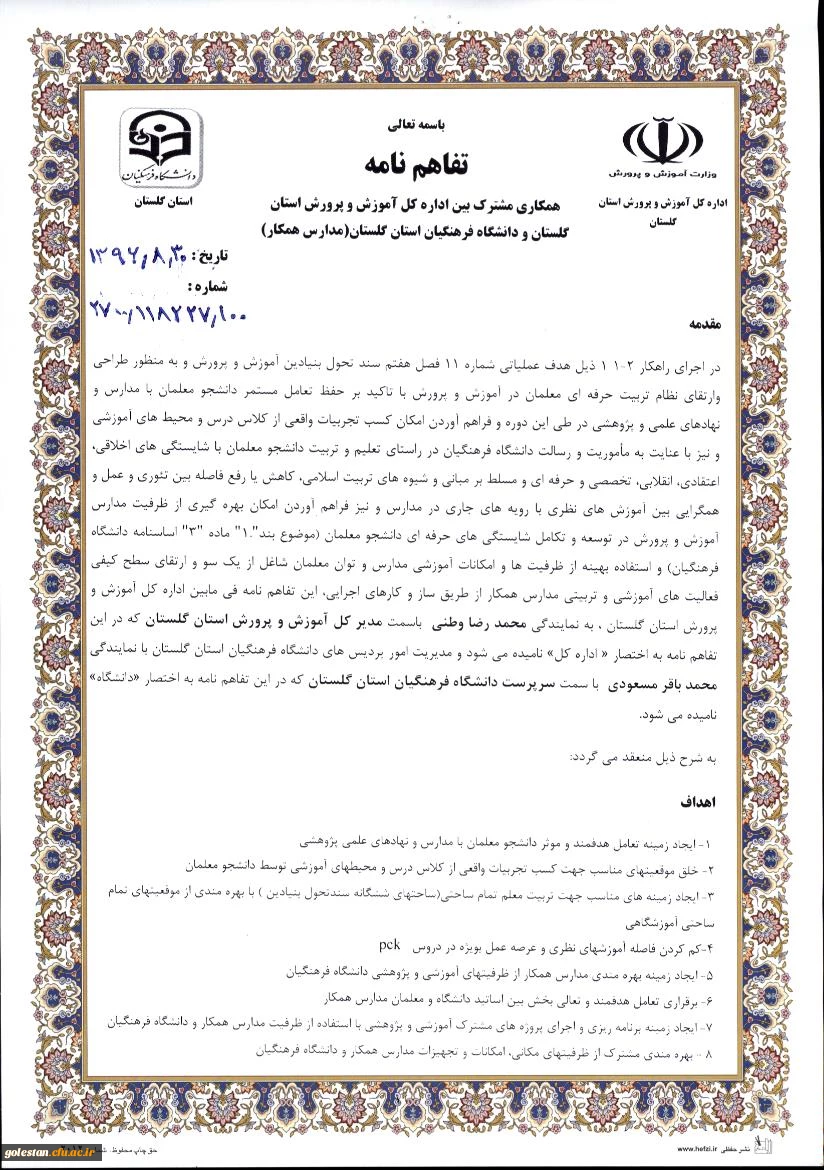 باسمه تعالی
تفاهم نامه
همکاری مشترک بین اداره کل آموزش و پرورش استان
گلستان و دانشگاه فرهنگیان استان گلستان(مدارس همکار)
وزارت آموزش و پرورش
اداره کل آموزش و پرورش استان
گلستان
دانشگاه فرهنگیان
استان گلستان
تاریخ: ۱۳۹۶٫۸٫۳۰
شماره:
۲۷۰۰/۱۱۸۲۲۷٫۱۰۰
مقدمه
در اجرای راهکار ۲-۱۱ ۱ ذیل هدف عملیاتی شماره ۱۱ فصل هفتم سند تحول بنیادین آموزش و پرورش و به منظور طراحی
وارتقای نظام تربیت حرفه ای معلمان در آموزش و پرورش با تاکید بر حفظ تعامل مستمر دانشجو معلمان با مدارس و
نهادهای علمی و پژوهشی در طی این دوره و فراهم آوردن امکان کسب تجربیات واقعی از کلاس درس و محیط های آموزشی
و نیز با عنایت به مأموریت و رسالت دانشگاه فرهنگیان در راستای تعلیم و تربیت دانشجو معلمان با شایستگی های اخلاقی،
اعتقادی، انقلابی، تخصصی و حرفه ای و مسلط بر مبانی و شیوه های تربیت اسلامی، کاهش یا رفع فاصله بین تئوری و عمل و
همگرایی بین آموزش های نظری با رویه های جاری در مدارس و نیز فراهم آوردن امکان بهره گیری از ظرفیت مدارس
آموزش و پرورش در توسعه و تکامل شایستگی های حرفه ای دانشجو معلمان (موضوع بند"۱." ماده "۳" اساسنامه دانشگاه
فرهنگیان) و استفاده بهینه از ظرفیت ها و امکانات آموزشی مدارس و توان معلمان شاغل از یک سو و ارتقای سطح کیفی
فعالیت های آموزشی و تربیتی مدارس همکار از طریق ساز و کارهای اجرایی، این تفاهم نامه فی مابین اداره کل آموزش و
پرورش استان گلستان ، به نمایندگی محمد رضا وطنی باسمت مدیر کل آموزش و پرورش استان گلستان که در این
تفاهم نامه به اختصار « اداره کل» نامیده می شود و مدیریت امور پردیس های دانشگاه فرهنگیان استان گلستان با نمایندگی
محمد باقر مسعودی با سمت سرپرست دانشگاه فرهنگیان استان گلستان که در این تفاهم نامه به اختصار «دانشگاه»
نامیده می شود.
به شرح ذیل منعقد می گردد:
اهداف
۱- ایجاد زمینه تعامل هدفمند و موثر دانشجو معلمان با مدارس و نهادهای علمی پژوهشی
۲- خلق موقعیتهای مناسب جهت کسب تجربیات واقعی از کلاس درس و محیطهای آموزشی توسط دانشجو معلمان
۳- ایجاد زمینه های مناسب جهت تربیت معلم تمام ساحتی(ساحتهای ششگانه سندتحول بنیادین ) با بهره مندی از موقعیتهای تمام
ساحتی آموزشگاهی
۴-کم کردن فاصله آموزشهای نظری و عرصه عمل بویژه در دروس pck
۵- ایجاد زمینه بهره مندی مدارس همکار از ظرفیتهای آموزشی و پژوهشی دانشگاه فرهنگیان
۶- برقراری تعامل هدفمند و تعالی بخش بین اساتید دانشگاه و معلمان مدارس همکار
۷- ایجاد زمینه برنامه ریزی و اجرای پروژه های مشترک آموزشی و پژوهشی با استفاده از ظرفیت مدارس همکار و دانشگاه فرهنگیان
۸ - بهره مندی مشترک از ظرفیتهای مکانی، امکانات و تجهیزات مدارس همکار و دانشگاه فرهنگیان
نشر حفظی www.hefzi.ir
حق چاپ محفوظ.
golestan.cfu.ac.ir